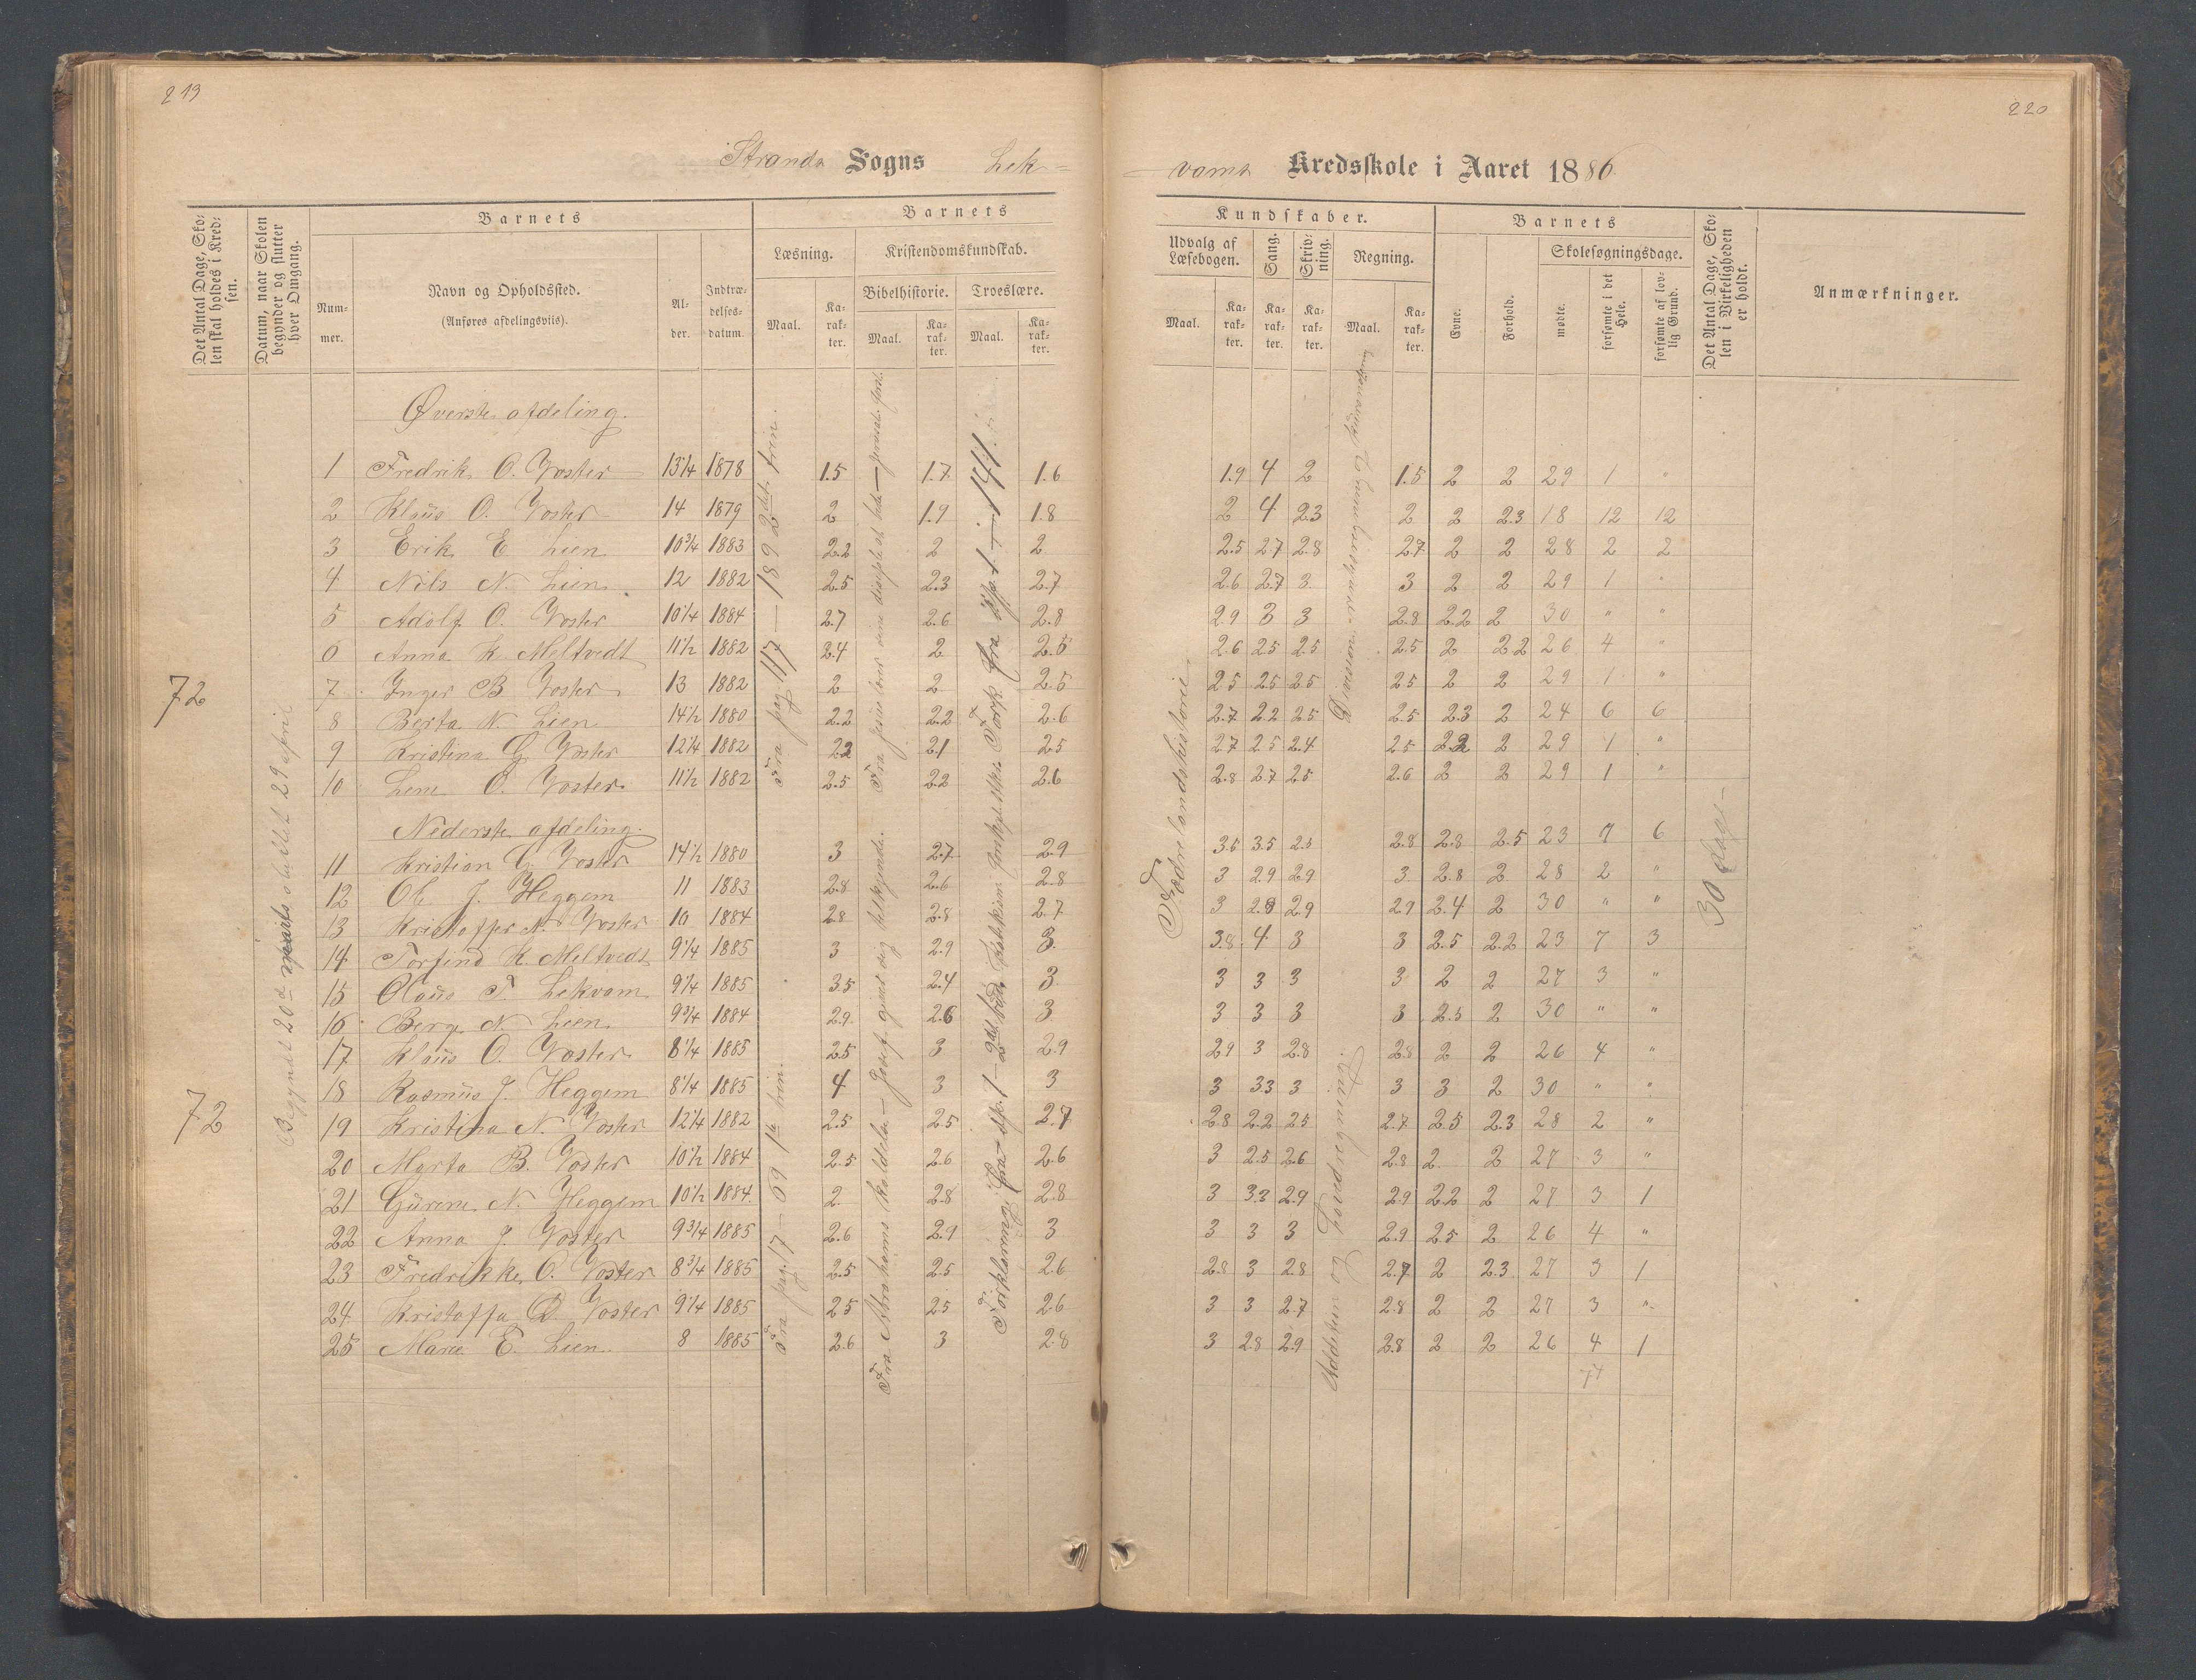 219
220
Stranda Sogns Lek-
-vams Kredsskole i Aaret 1886
Det Antal Dage, Skolen skal holdes i Kredsen.
Datum, naar Skolen begynder og slutter hver Omgang.
Barnets
Nummer.
Navn og Opholdssted.
(Anføres afdelingsviis).
Alder.
Indtrædelsesdatum.
Barnets
Læsning.
Maal.
Karakter.
Kristendomskundskab.
Bibelhistorie.
Maal.
Karakter.
Troeslære.
Maal.
Karakter.
Kundskaber.
Udvalg af Læsebogen.
Maal.
Karakter.
Sang.
Karakter.
Skrivning.
Karakter.
Regning.
Maal.
Karakter.
Barnets
Evne.
Forhold.
Skolesøgningsdage.
mødte.
forsømte i det Hele.
forsømte af lovlig Grund.
Det Antal Dage, Skolen i Virkeligheden er holdt.
Anmærkninger.
72
72
sluttet 29 april
Øverste afdeling.
1 Fredrik O. Voster 13 1/4 1878 1.5 1.7 1.6 1.9 4 2 1.5 2 2 29 1 "
2 Klaus O. Voster 14 1879 2 1.9 1.8 2 4 2.3 2 2 2.3 18 12 12
3 Erik E Lien 10 3/4 1883 2.2 2 2 2.5 2.7 2.8 2.7 2 2 28 2 2
4 Nils N. Lien 12 1882 2.5 2.3 2.7 2.6 2.7 3 3 2 2 29 1 "
5 Adolf O. Voster 10 1/4 1884 2.7 2.6 2.8 2.9 3 3 2.8 2.2 2 30 " "
6 Anna K. Meltvedt 11 1/2 1882 2.4 2 2.5 2.6 2.5 2.5 2.5 2 2.2 26 4 "
7 Inger B Voster 13 1882 2 2 2.5 2.5 2.5 2.5 2.5 2 2 29 1 "
8 Berta N. Lien 14 1/2 1880 2.2 2.2 2.6 2.7 2.2 2.5 2.5 2.3 2 24 6 6
9 Kristina G. Voster 12 1/4 1882 2.2 2.1 2.5 2.7 2.5 2.4 2.5 2.2 2 29 1 "
10 Lene O. Voster 11 1/2 1882 2.5 2.2 2.6 2.8 2.7 2.5 2.6 2 2 29 1 "
Nederste afdeling.
11 Kristian G. Voster 14 1/2 1880 3 2.7 2.9 3.5 3.5 2.5 2.8 2.8 2.5 23 7 6
12 Ole J. Heggem 11 1883 2.8 2.6 2.8 3 2.9 2.9 3 2.8 2 28 2 "
13 Kristoffer N. Voster 10 1884 2.8 2.8 2.7 3 2.8 2.9 2.9 2.4 2 30 " "
14 Torfind K. Meltvedt 9 1/4 1885 3 2.9 3 3.8 4 3 3 2.5 2.2 23 7 3
15 Olaus T. Lekvam 9 1/4 1885 3.5 2.4 3 3 3 3 3 2 2 27 3 "
16 Berge N. Lien 9 3/4 1884 2.9 2.6 3 3 3 3 3 2.5 2 30 " "
17 Klaus O. Voster 8 1/4 1885 2.5 3 2.9 2.9 3 2.8 2.8 2 2 26 4 "
18 Rasmus J. Heggem 8 1/4 1885 4 3 3 3 3.3 3 3 3 2 30 " "
19 Kristina N. Voster 12 1/4 1882 2.5 2.5 2.7 2.8 2.2 2.5 2.7 2.5 2.3 28 2 "
20 Marta B. Voster 10 1/2 1884 2.5 2.6 2.6 3 2.5 2.6 2.8 2 2 27 3 "
21 Gurine N. Heggem 10 1/2 1884 2 2.8 2.8 3 3.3 2.9 2.9 2.2 2 27 3 1
22 Anna J. Voster 9 3/4 1885 2.6 2.9 3 3 3 3 2.9 2.5 2 26 4 "
23 Fredrikke O. Voster 8 3/4 1885 2.5 2.5 2.6 2.8 3 2.8 2.7 2 2.3 27 3 1
24 Kristoffa O. Voster 9 1/4 1885 2.5 2.5 2.6 3 3 2.7 2.8 2 2 27 3 "
25 Marie E. Lien 8 1885 2.6 3 2.8 3 2.8 2.9 2.8 2 2 26 4 1
Fra pag 117 - 189 2det trin.
Fra pag. 17 - 69 1te trin.
Fædrelandshistorie
Addition og Hovedregning.
30 dage